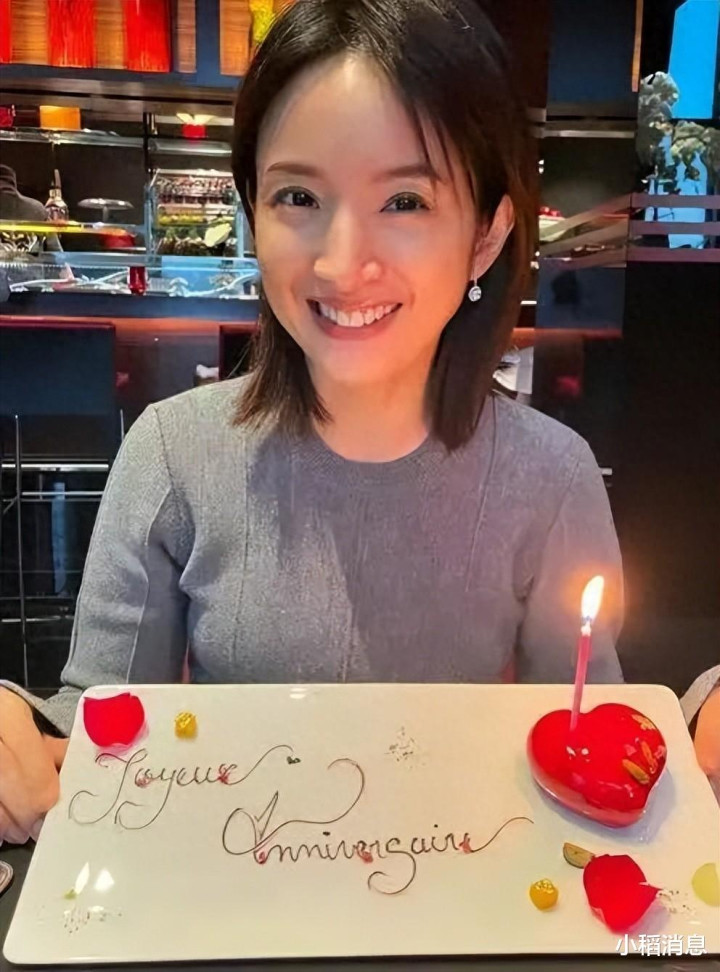 Joyeux
Anniversaire
小稻消息